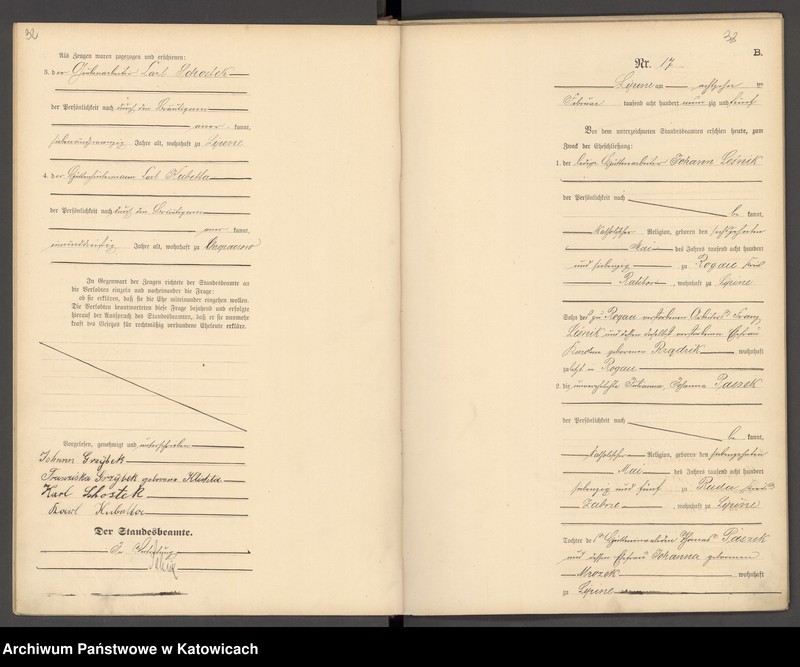 32
Als Zeugen waren zugezogen und erschienen:
3. der Hüttenarbeiter Carl Schostek
der Persönlichkeit nach durch den Bräutigam
aner kannt,
siebenundzwanzig Jahre alt, wohnhaft zu Lipine
4. der Carl Kubetta
der Persönlichkeit nach durch den Bräutigam
aner kannt,
einunddreißig Jahre alt, wohnhaft zu
In Gegenwart der Zeugen richtete der Standesbeamte an
die Verlobten einzeln und nacheinander die Frage:
ob sie erklären, daß sie die Ehe miteinander eingehen wollen.
Die Verlobten beantworteten diese Frage bejahend und erfolgte
hierauf der Ausspruch des Standesbeamten, daß er sie nunmehr
kraft des Gesetzes für rechtmäßig verbundene Eheleute erkläre.
Vorgelesen, genehmigt und unterschrieben
Johann Grzybek
Franziska Grzybek geborene
Karl Schostek
Karl Kubetta
Der Standesbeamte.
In Vertretung
33
B.
Nr. 17
Lipine am achtzehn ten
Februar tausend acht hundert neun zig und fünf
Vor dem unterzeichneten Standesbeamten erschien heute, zum
Zweck der Eheschließung:
1. der ledige Hüttenarbeiter Johann Leśnik
der Persönlichkeit nach
be kannt,
katholischer Religion, geboren den sechszehnten
Mai des Jahres tausend acht hundert
und siebenzig zu Rogau Kreis
Ratibor, wohnhaft zu Lipine
Sohn des zu Rogau verstorbenen Arbeiters Franz
Leśnik und dessen daselbst verstorbenen Ehefrau
geborenen wohnhaft
zuletzt in Rogau
2. die unverehelichte Johanna Paszek
der Persönlichkeit nach
be kannt,
katholischer Religion, geboren den siebenzehnten
Mai des Jahres tausend acht hundert
siebenzig und fünf zu Ruda Kreis
Zabrze, wohnhaft zu Lipine
Tochter des Hütteninvaliden Thomas Paszek
und dessen Ehefrau Johanna geborenen
Mrozek wohnhaft
zu Lipine
Archiwum Państwowe w Katowicach